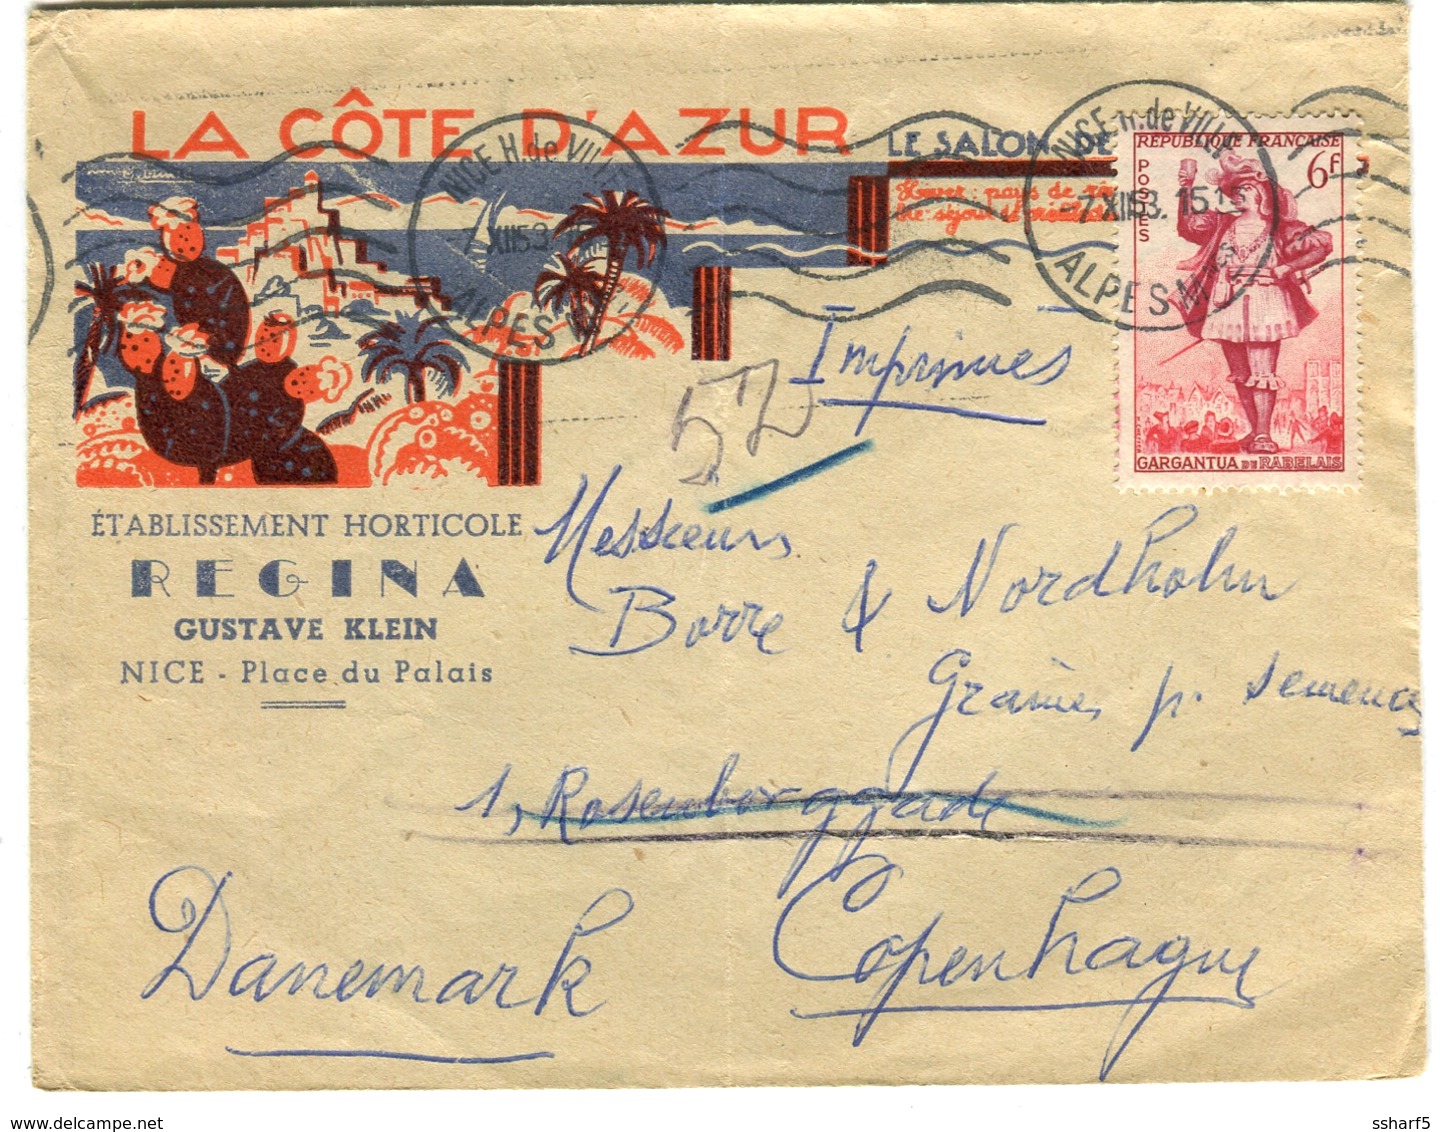 LA CÔTE D'AZUR
LE SALON DE
Hiver : pays de
NICE H. de VILLE
7 XII 53
ALPES M
NICE H. de VILLE
-7 XII 53. 15 15
ALPES M
RÉPUBLIQUE FRANÇAISE
POSTES
6F
GARGANTUA DE RABELAIS
Imprimés
52
ÉTABLISSEMENT HORTICOLE
REGINA
GUSTAVE KLEIN
NICE - Place du Palais
Messieurs
Borre & Nordholm
Graines p. semences
1, Rosenborggade
Copenhague
Danemark
ssharf5